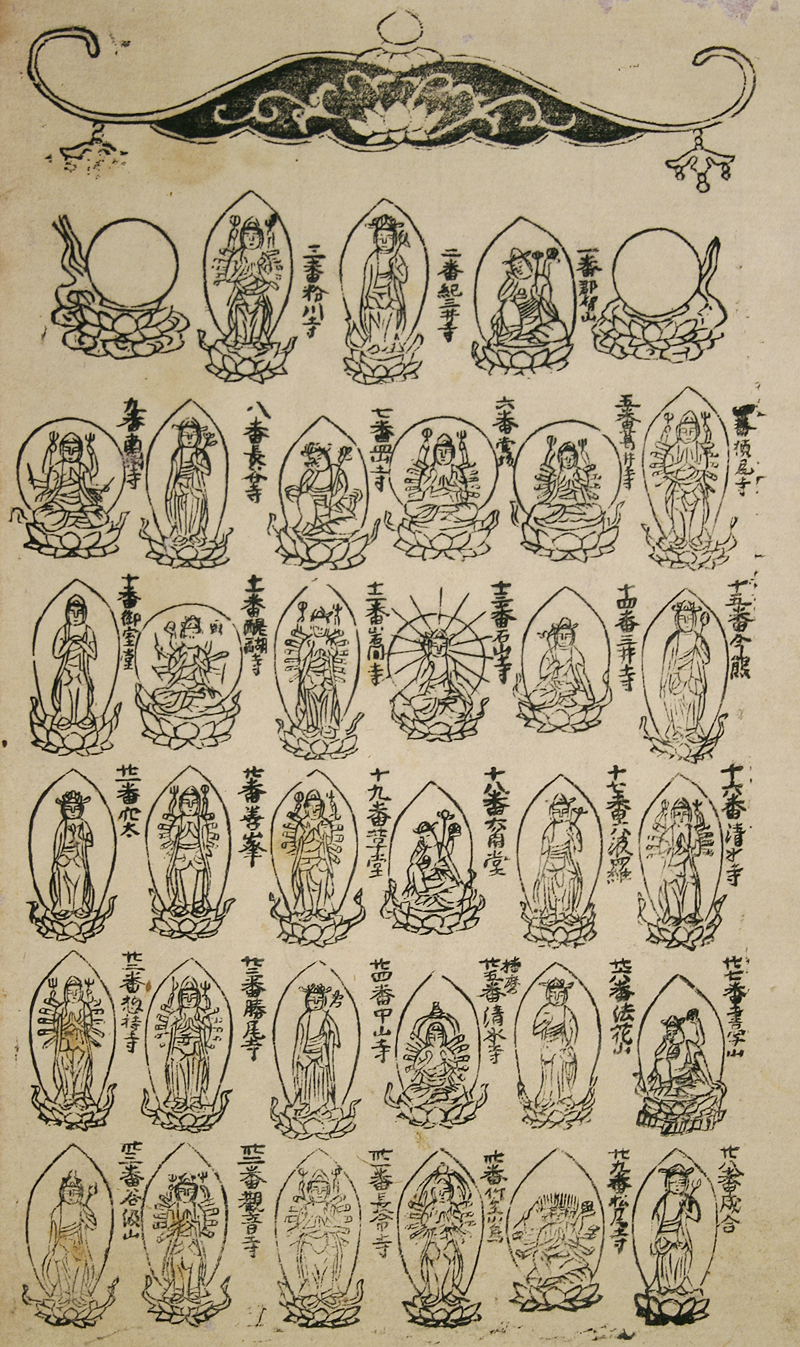 一番那智山
二番紀三井寺
三番粉川寺
四番槙尾寺
五番葛井寺
六番壺坂
七番岡寺
八番長谷寺
九番南円寺
十番御室堂
十一番醍醐寺
十二番岩間寺
十三番石山寺
十四番三井寺
十五番今熊
十六番清水寺
十七番六波羅
十八番六角堂
十九番革堂
廿番善峯
廿一番穴太
廿二番惣持寺
廿三番勝尾寺
廿四番中山寺
播磨
廿五番清水寺
廿六番法花山
廿七番書写山
廿八番成合
廿九番松尾寺
卅番竹生嶌
卅一番長命寺
卅二番観音寺
卅三番谷汲山